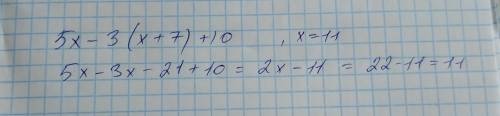 5x - 3(x + 7) + 10 , x = 11
5x - 3x - 21 + 10 = 2x - 11 = 22 - 11 = 11